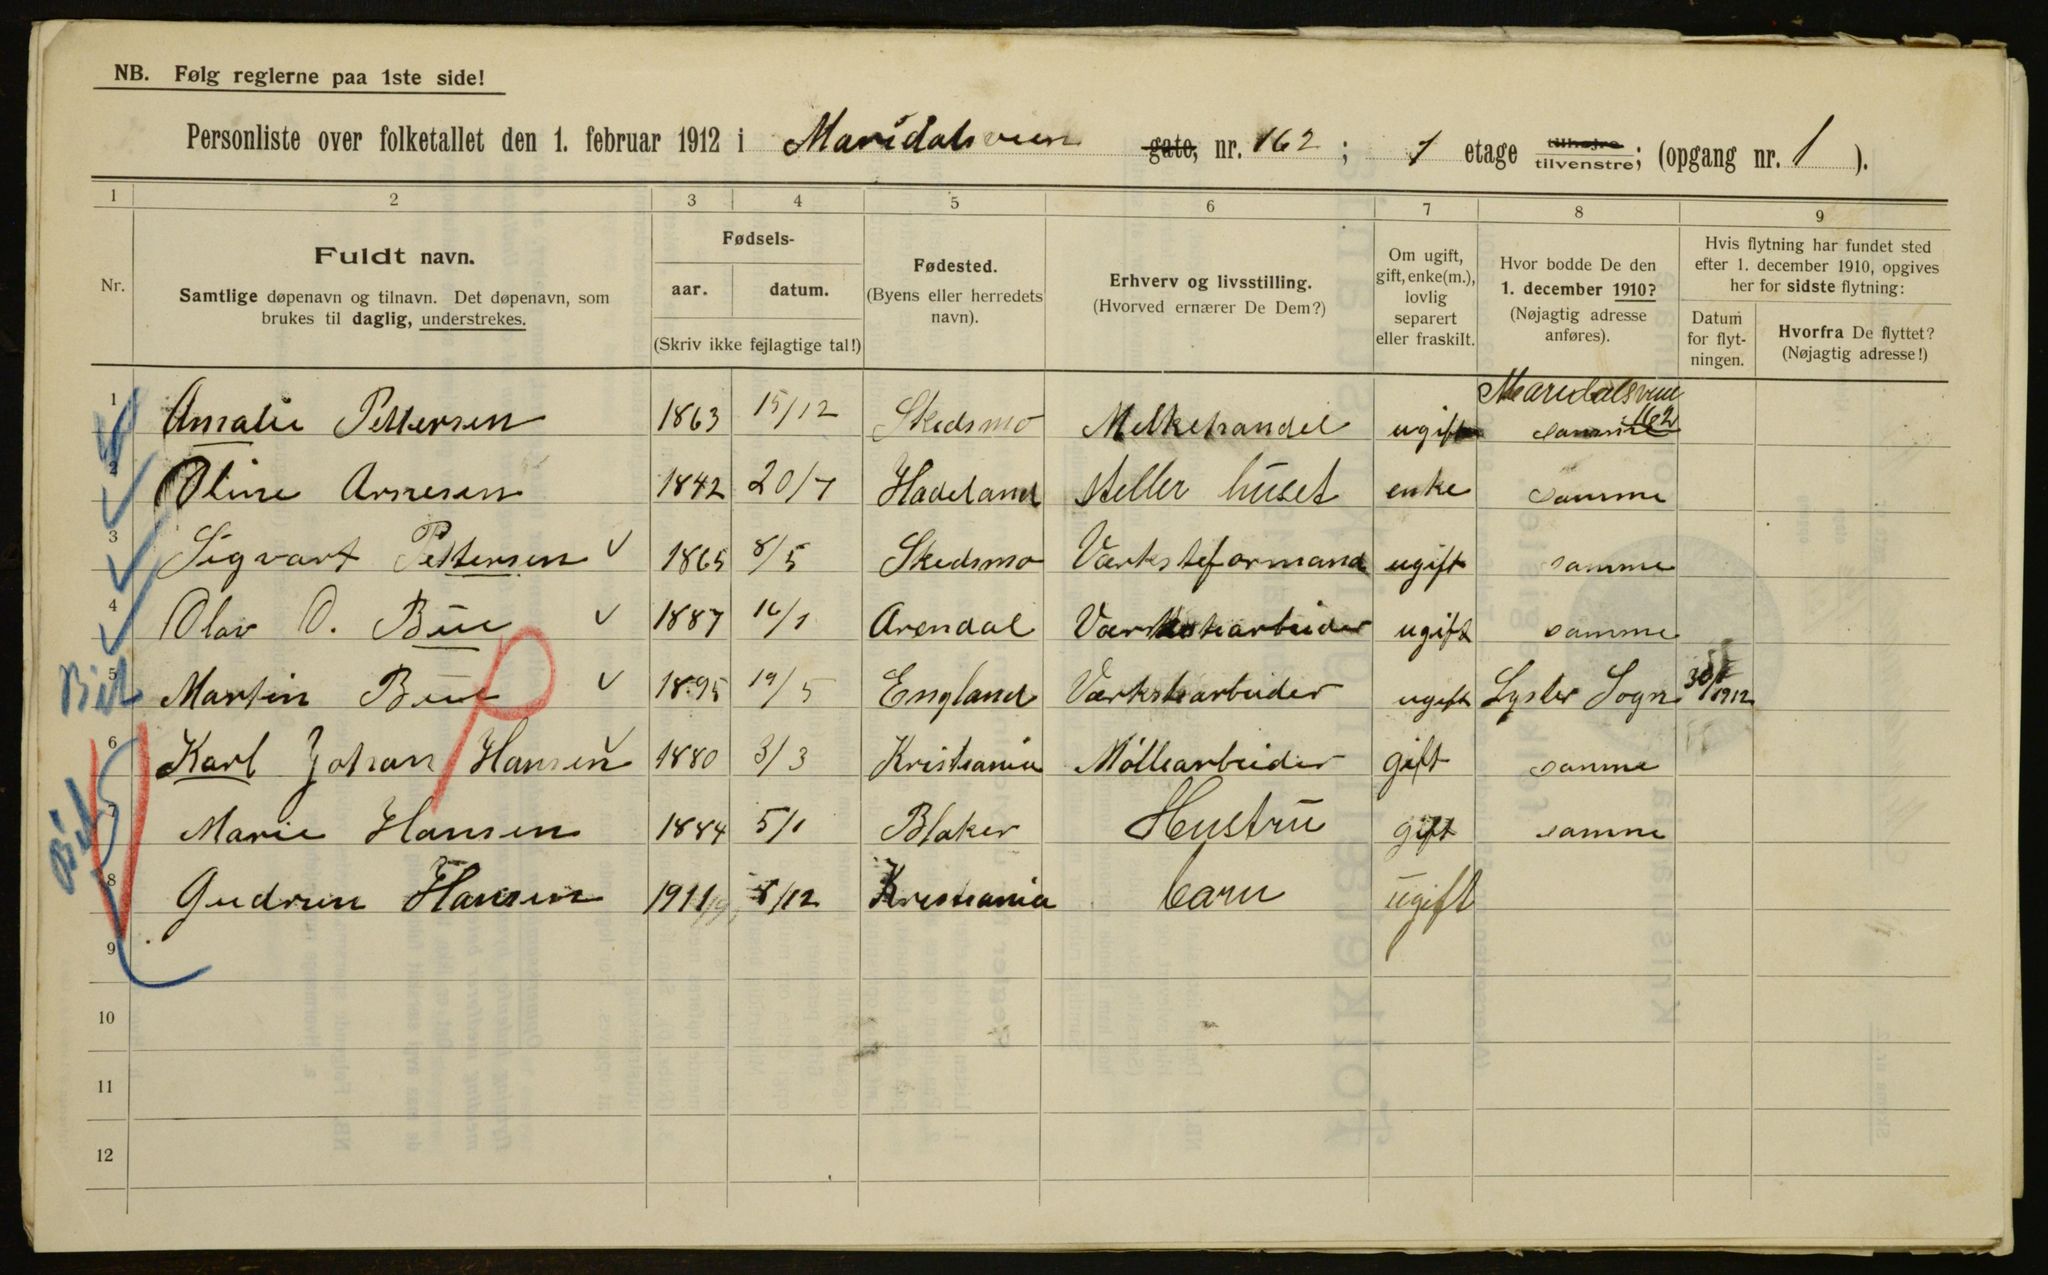 NB. Følg reglerne paa 1ste side!
Personliste over folketallet den 1. februar 1912 i Maridalsveien gate, nr. 162; 1 etage tilhøjre tilvenstre; (opgang nr. 1).
1 2 3 4 5 6 7 8 9
Nr.
Fuldt navn.
Samtlige døpenavn og tilnavn. Det døpenavn, som
brukes til daglig, understrekes.
Fødsels-
aar. datum.
(Skriv ikke fejlagtige tal!)
Fødested.
(Byens eller herredets
navn).
Erhverv og livsstilling.
(Hvorved ernærer De Dem?)
Om ugift,
gift, enke(m.),
lovlig
separert
eller fraskilt.
Hvor bodde De den
1. december 1910?
(Nøjagtig adresse
anføres).
Hvis flytning har fundet sted
efter 1. december 1910, opgives
her for sidste flytning:
Datum
for flyt-
ningen.
Hvorfra De flyttet?
(Nøjagtig adresse!)
Maridalsveien 162
1 Amalie Pettersen 1863 15/12 Skedsmo Melkehandel ugift samme
2 Oline Arnesen 1842 20/7 Hadeland steller huset enke samme
3 Sigvart Pettersen 1865 8/5 Skedsmo Værksteformand ugift samme
4 Olav O. Bue 1887 16/1 Arendal Værkstearbeider ugift samme
Bil
5 Martin Bue 1895 19/5 England Værkstearbeider ugift Lyster Sogn 1912
6 Karl Johan Hansen 1880 3/3 Kristiania Møllearbeider gift samme
Bil
7 Marie Hansen 1884 5/1 Blaker Hustru gift samme
8 Gudrun Hansen 1911 8/12 Kristiania barn ugift
9
10
11
12